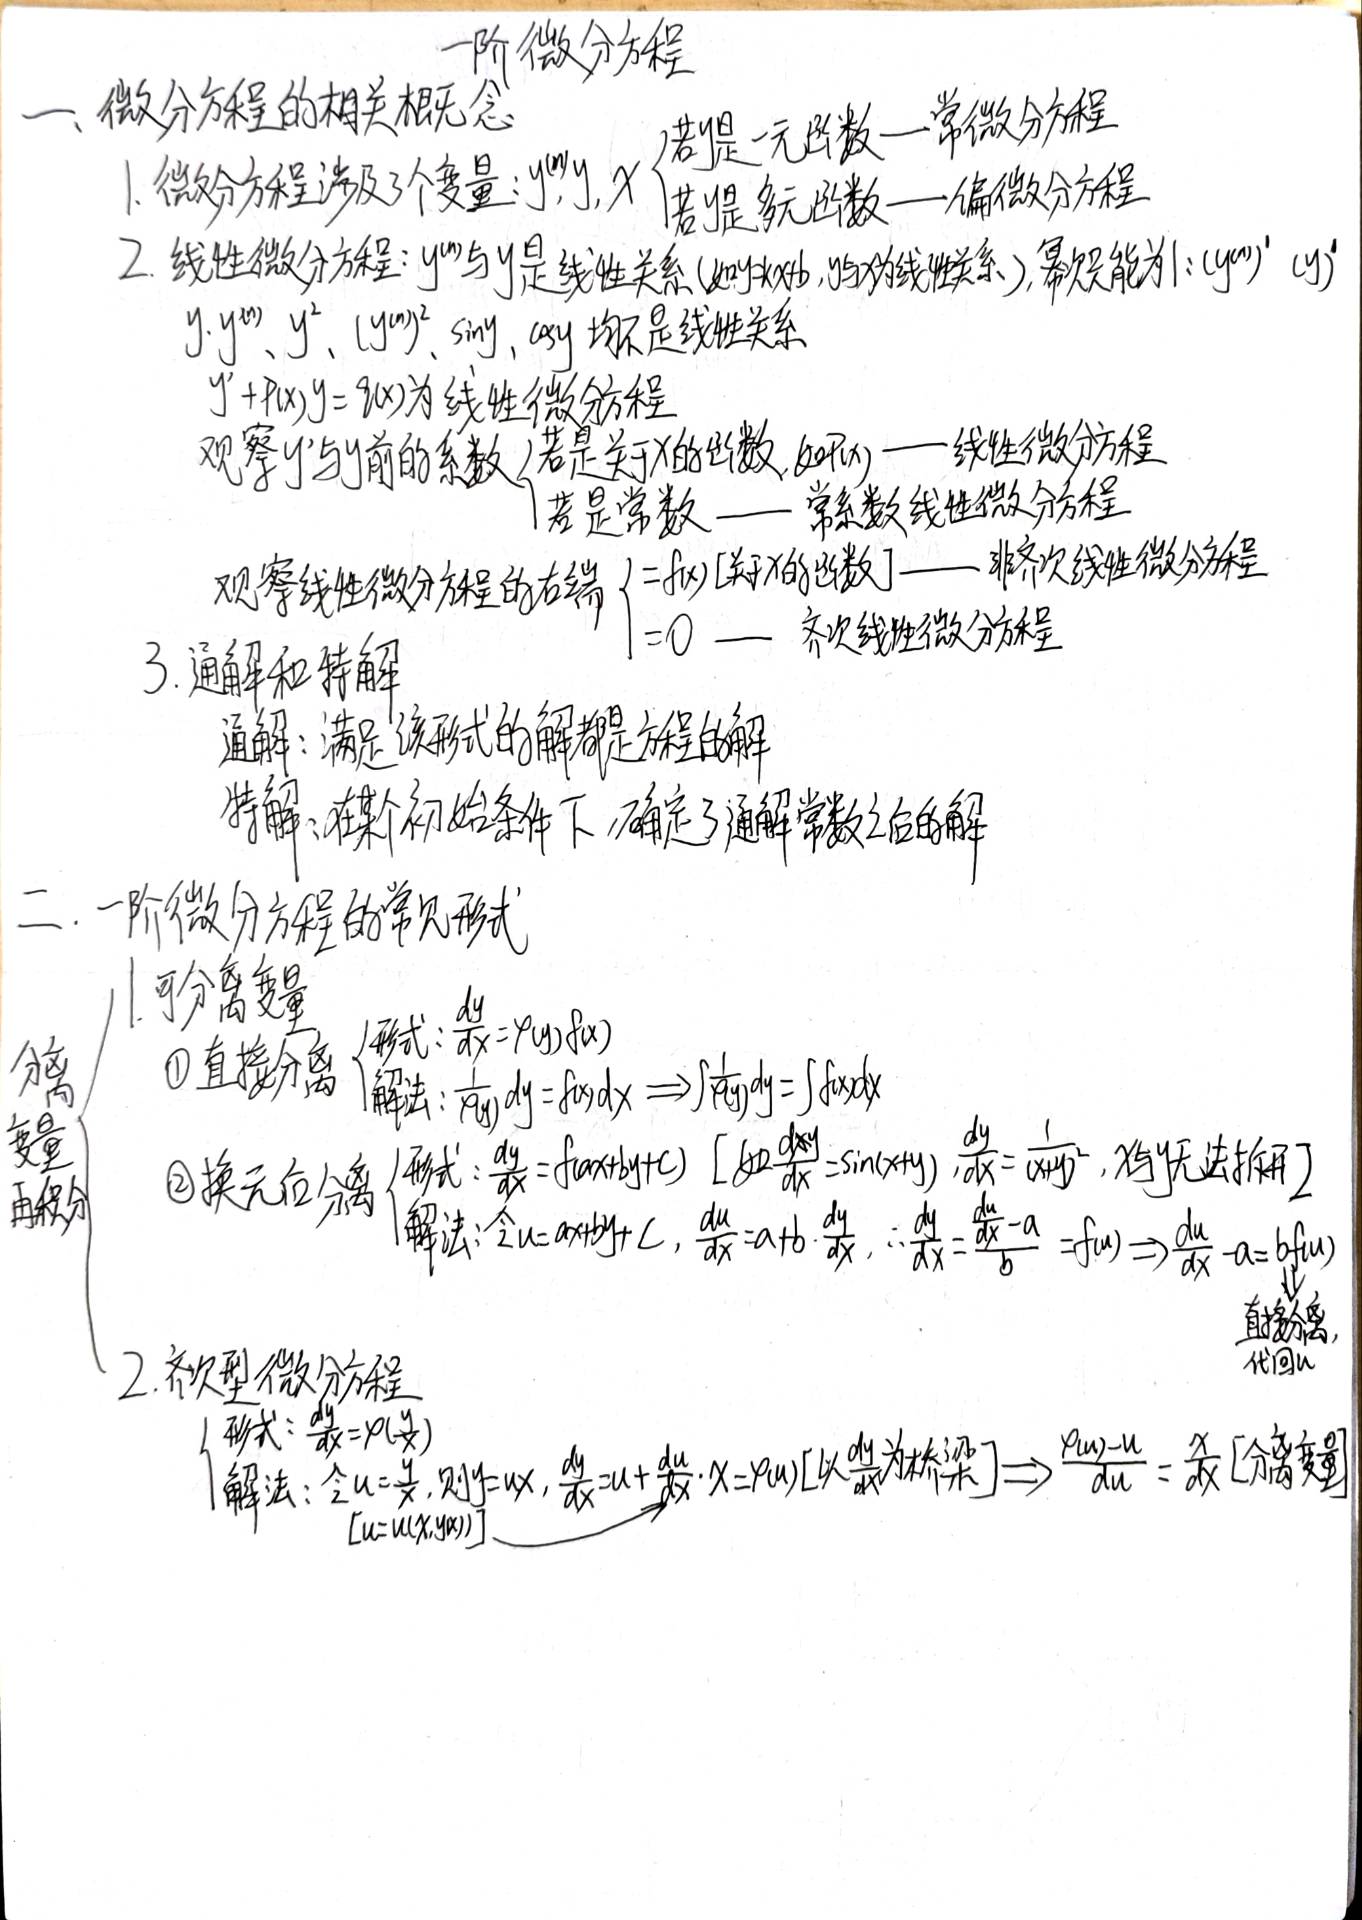 一阶微分方程
一、微分方程的相关概念
1. 微分方程涉及3个变量：y⁽ⁿ⁾, y, x { 若y是一元函数——常微分方程
若y是多元函数——偏微分方程
2. 线性微分方程：y⁽ⁿ⁾与y是线性关系(如y=kx+b, y与x为线性关系), 幂次只能为1：(y⁽ⁿ⁾)¹ (y)¹
y·y⁽ⁿ⁾、y²、(y⁽ⁿ⁾)²、siny、cosy 均不是线性关系
y'+P(x)y=q(x)为线性微分方程
观察y'与y前的系数 { 若是关于x的函数, 如P(x) —— 线性微分方程
若是常数 —— 常系数线性微分方程
观察线性微分方程的右端 { =f(x) [关于x的函数] —— 非齐次线性微分方程
=0 —— 齐次线性微分方程
3. 通解和特解
通解：满足该形式的解都是方程的解
特解：在某个初始条件下，确定了通解常数之后的解
二. 一阶微分方程的常见形式
分离变量再积分
1. 可分离变量
① 直接分离 { 形式：dy/dx=φ(y)f(x)
解法：1/φ(y) dy=f(x)dx ⟹ ∫1/φ(y) dy=∫f(x)dx
② 换元后分离 { 形式：dy/dx=f(ax+by+c) [如 dy/dx=sin(x+y), dy/dx=1/(x+y)², x与y无法拆开]
解法：令u=ax+by+c, du/dx=a+b·dy/dx, ∴dy/dx=(du/dx-a)/b=f(u) ⟹ du/dx-a=bf(u)
⇓
直接分离,
代回u
2. 齐次型微分方程
{ 形式：dy/dx=φ(y/x)
解法：令u=y/x, 则y=ux, dy/dx=u+du/dx·x=φ(u) [以dy/dx为桥梁] ⟹ (φ(u)-u)/du=x/dx [分离变量]
[u=u(x,y(x))]